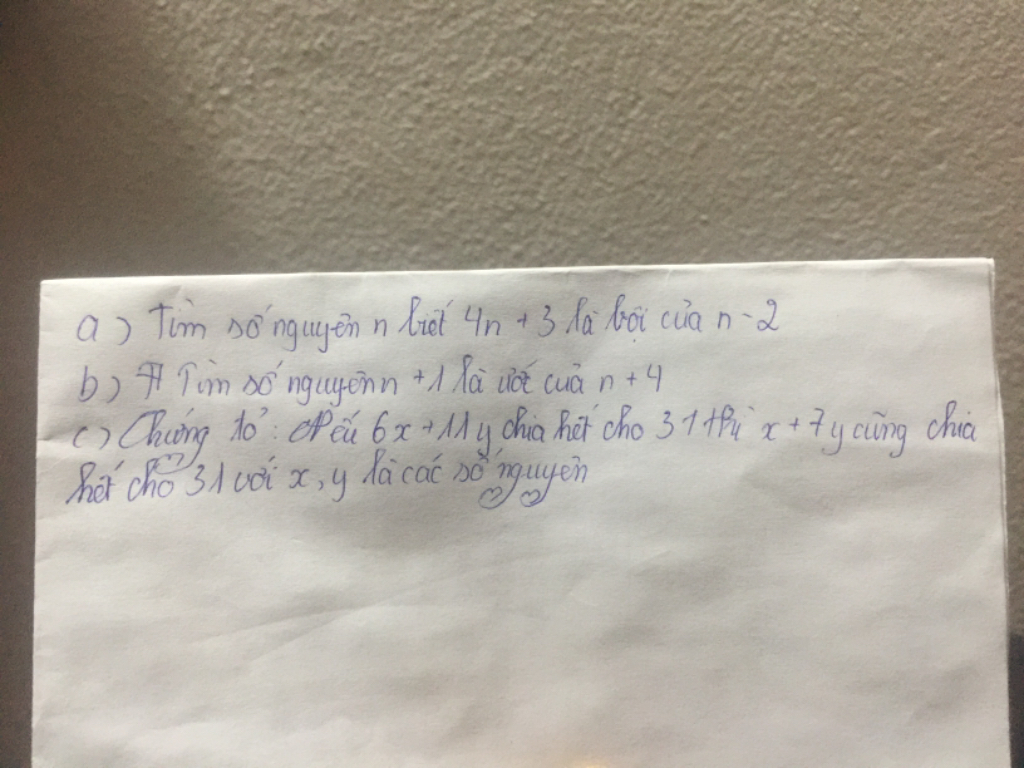 a) Tìm số nguyên n biết 4n + 3 là bội của n - 2
b) Tìm số nguyên n + 1 là ước của n + 4
c) Chứng tỏ: Nếu 6x + 11y chia hết cho 31 thì x + 7y cũng chia
hết cho 31 với x, y là các số nguyên